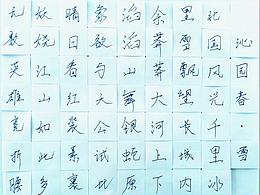 沁园春·雪
北国风光千里冰
里雪飘望长城内
余莽莽大河上下
滔滔山舞银蛇原
象欲与天公试比
晴日看红装素裹
妖娆江山如此多
无数英雄竞折腰